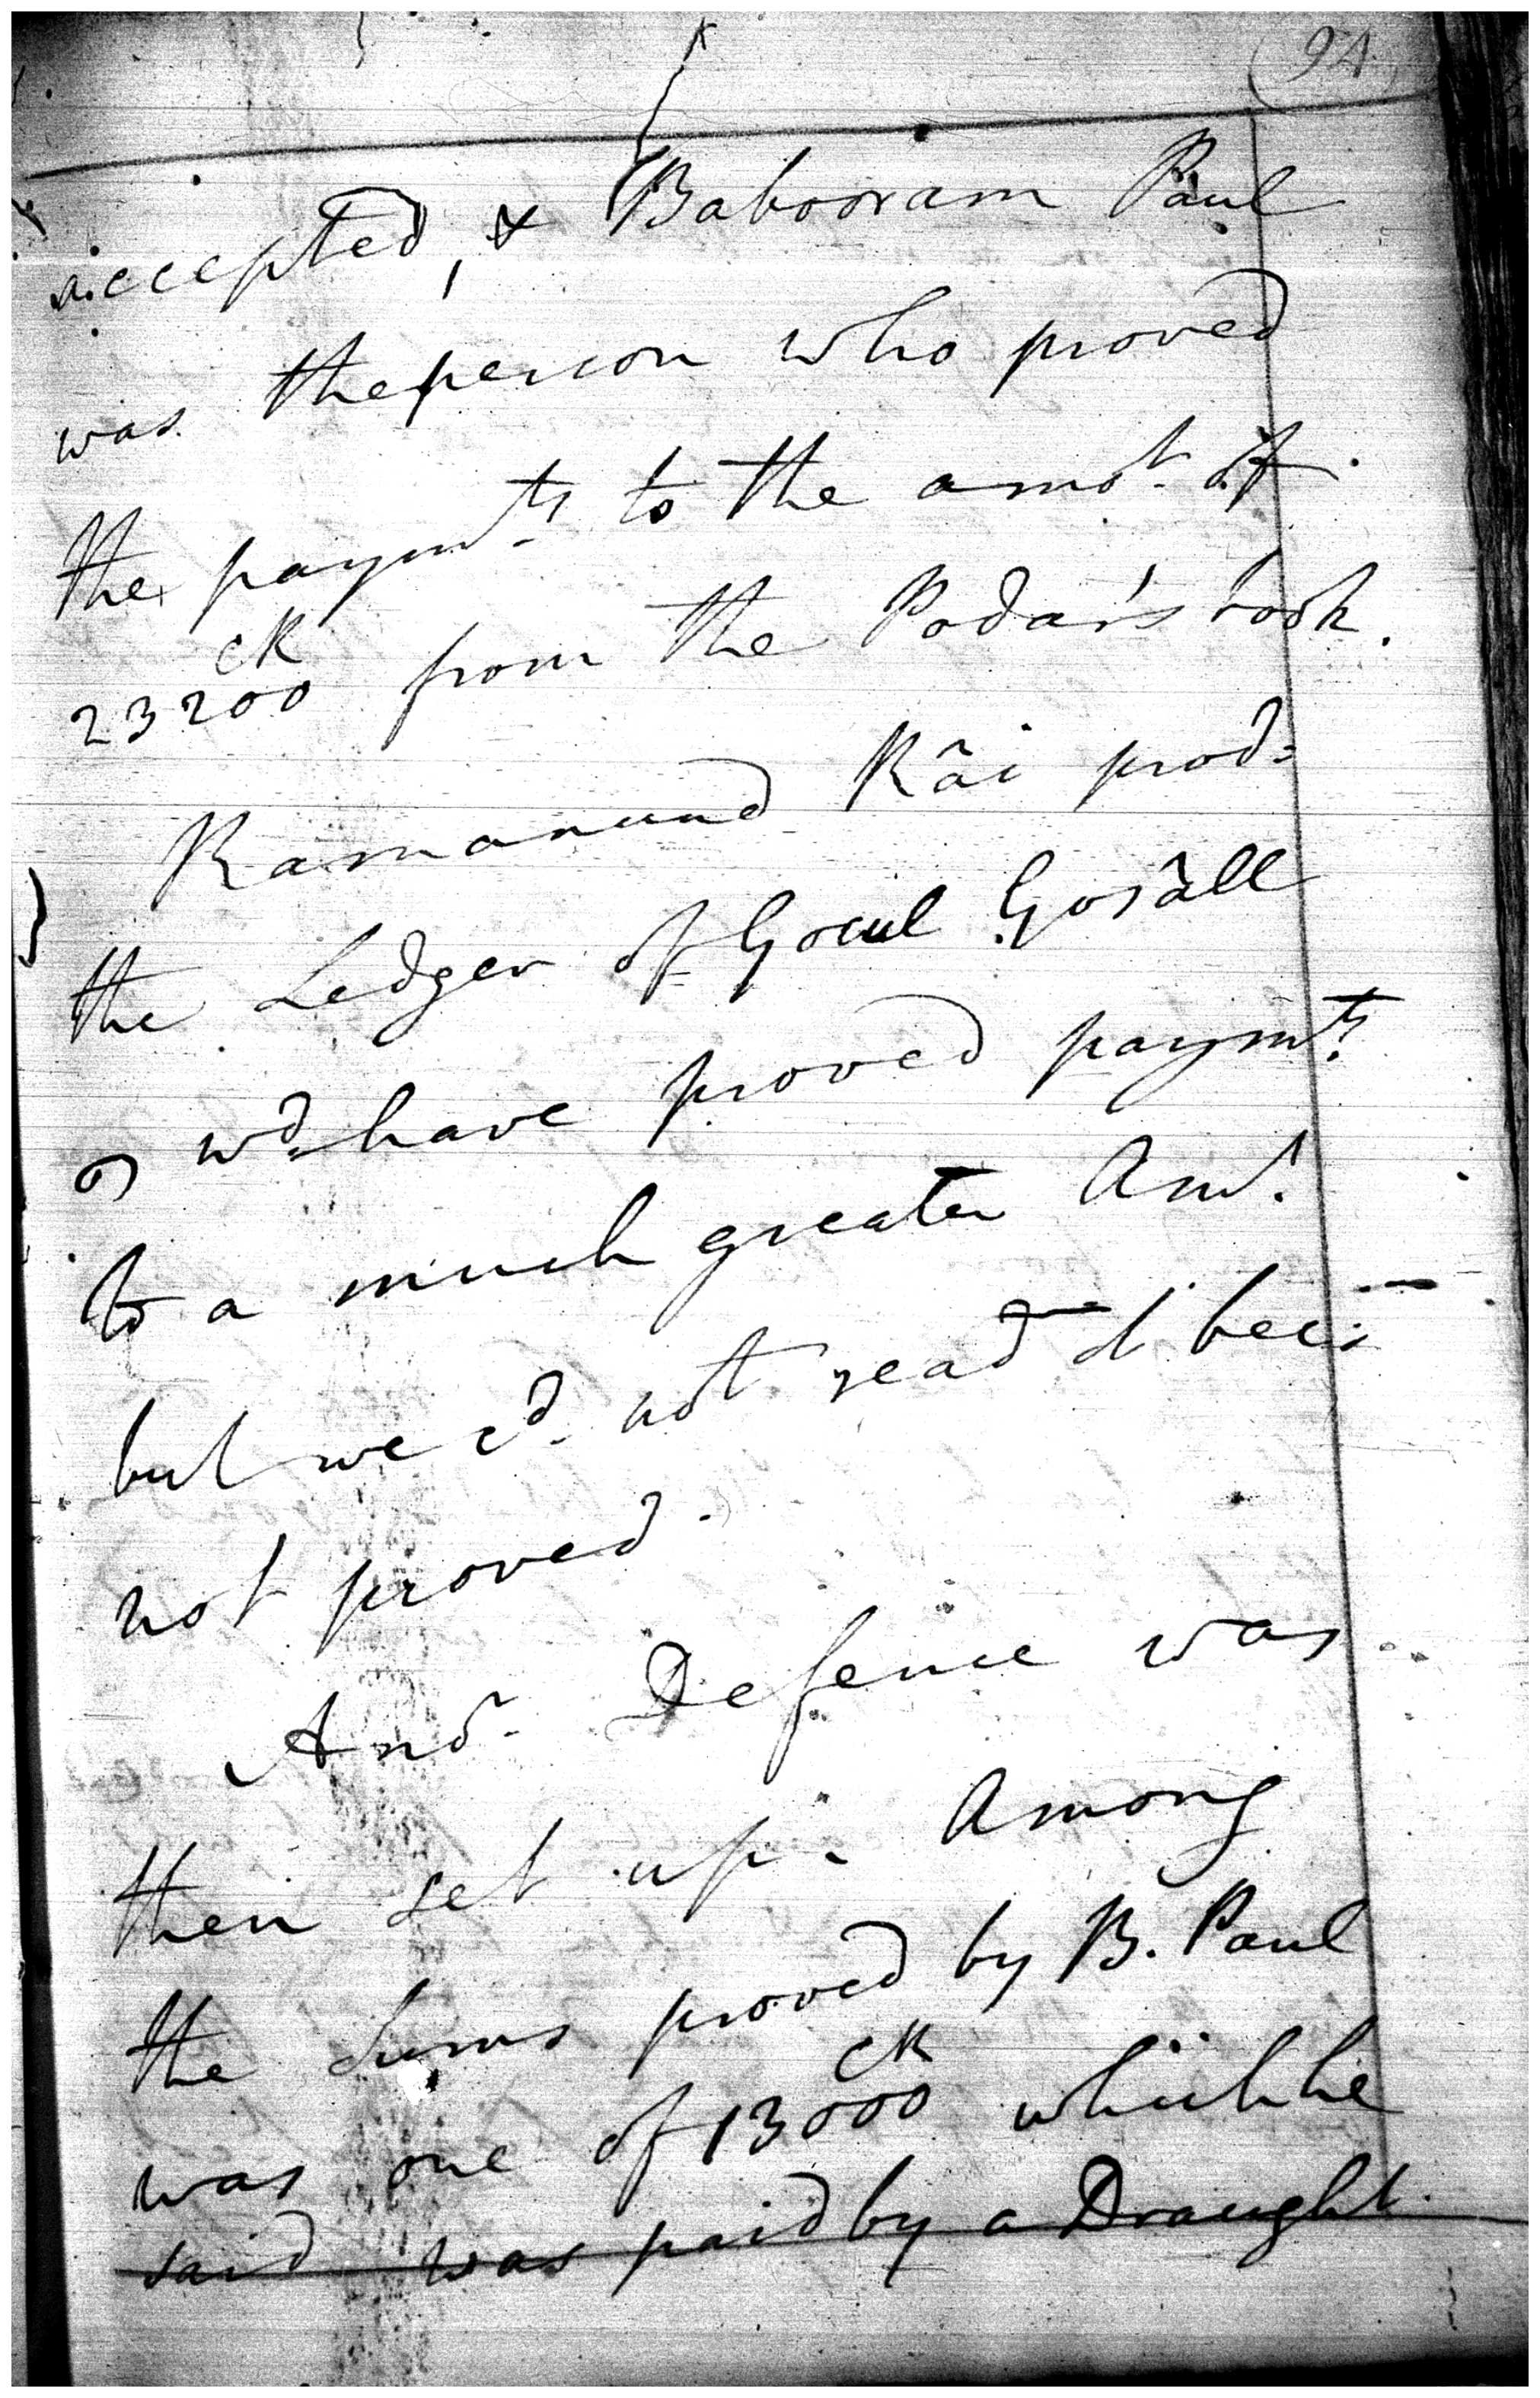 94
accepted, & Babooram Paul
was the person who proved
the paymts to the amot. of
CR
23200 from the Podar's book.
Ramanund Râi prod:
the Ledger of Gocul Gosâll
wd have proved paymts
to a much greater Amt.
but we cd. not read it
not proved.
And. Defence was
then set up. Among
the Sums proved by B. Paul
CR
was one of 13000 which he
said was paid by a Draught